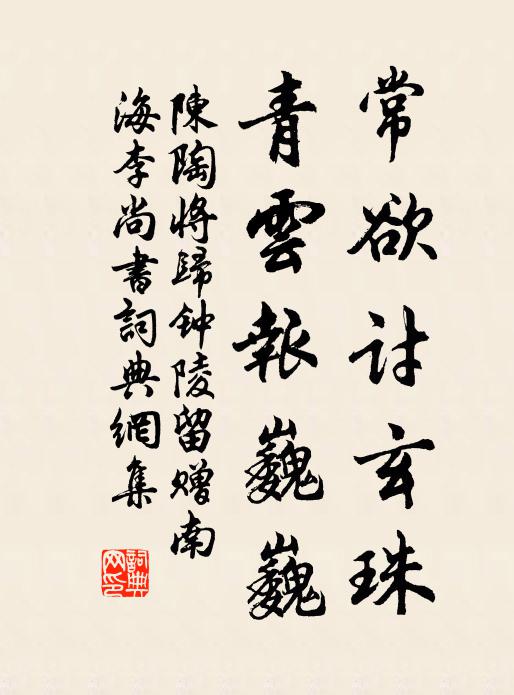 常欲討玄珠
青雲報巍巍
陳陶將歸钟陵留赠南
海李尚書詞典網集
詞典
网印